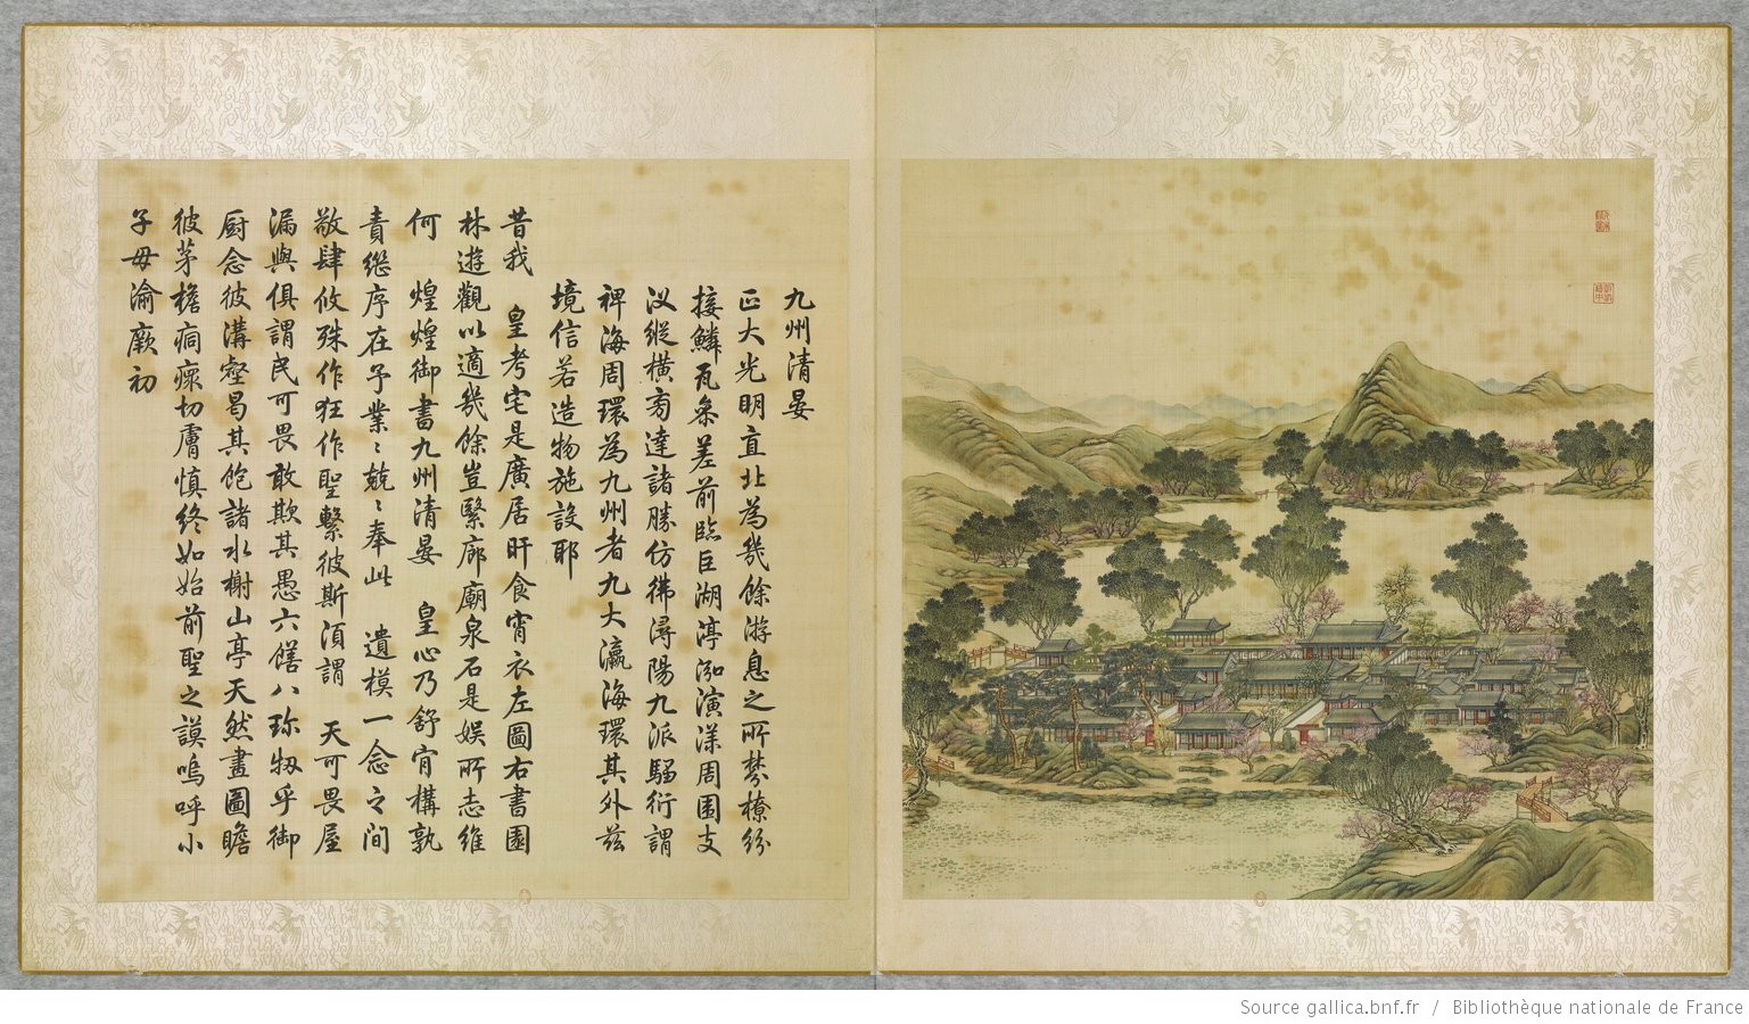 九州清晏
正大光明直北為幾餘游息之所棼橑紛
接鱗瓦參差前臨巨湖渟泓演漾周圍支
汊縱橫旁達諸勝仿彿潯陽九派騶衍謂
裨海周環為九州者九大瀛海環其外兹
境信若造物施設耶
昔我 皇考宅是廣居旰食宵衣左圖右書園
林遊觀以適幾餘豈繄廊廟泉石是娱所志維
何 煌煌御書九州清晏 皇心乃舒肯構孰
責繼序在予業〻兢〻奉此 遺模一念之間
敬肆攸殊作狂作聖繫彼斯須謂 天可畏屋
漏與俱謂民可畏敢欺其愚六饍八珎物乎御
厨念彼溝壑曷其飽諸水榭山亭天然畫圖瞻
彼茅檐痌瘝切膚慎終如始前聖之謨嗚呼小
子毋渝厥初
Source gallica.bnf.fr / Bibliothèque nationale de France